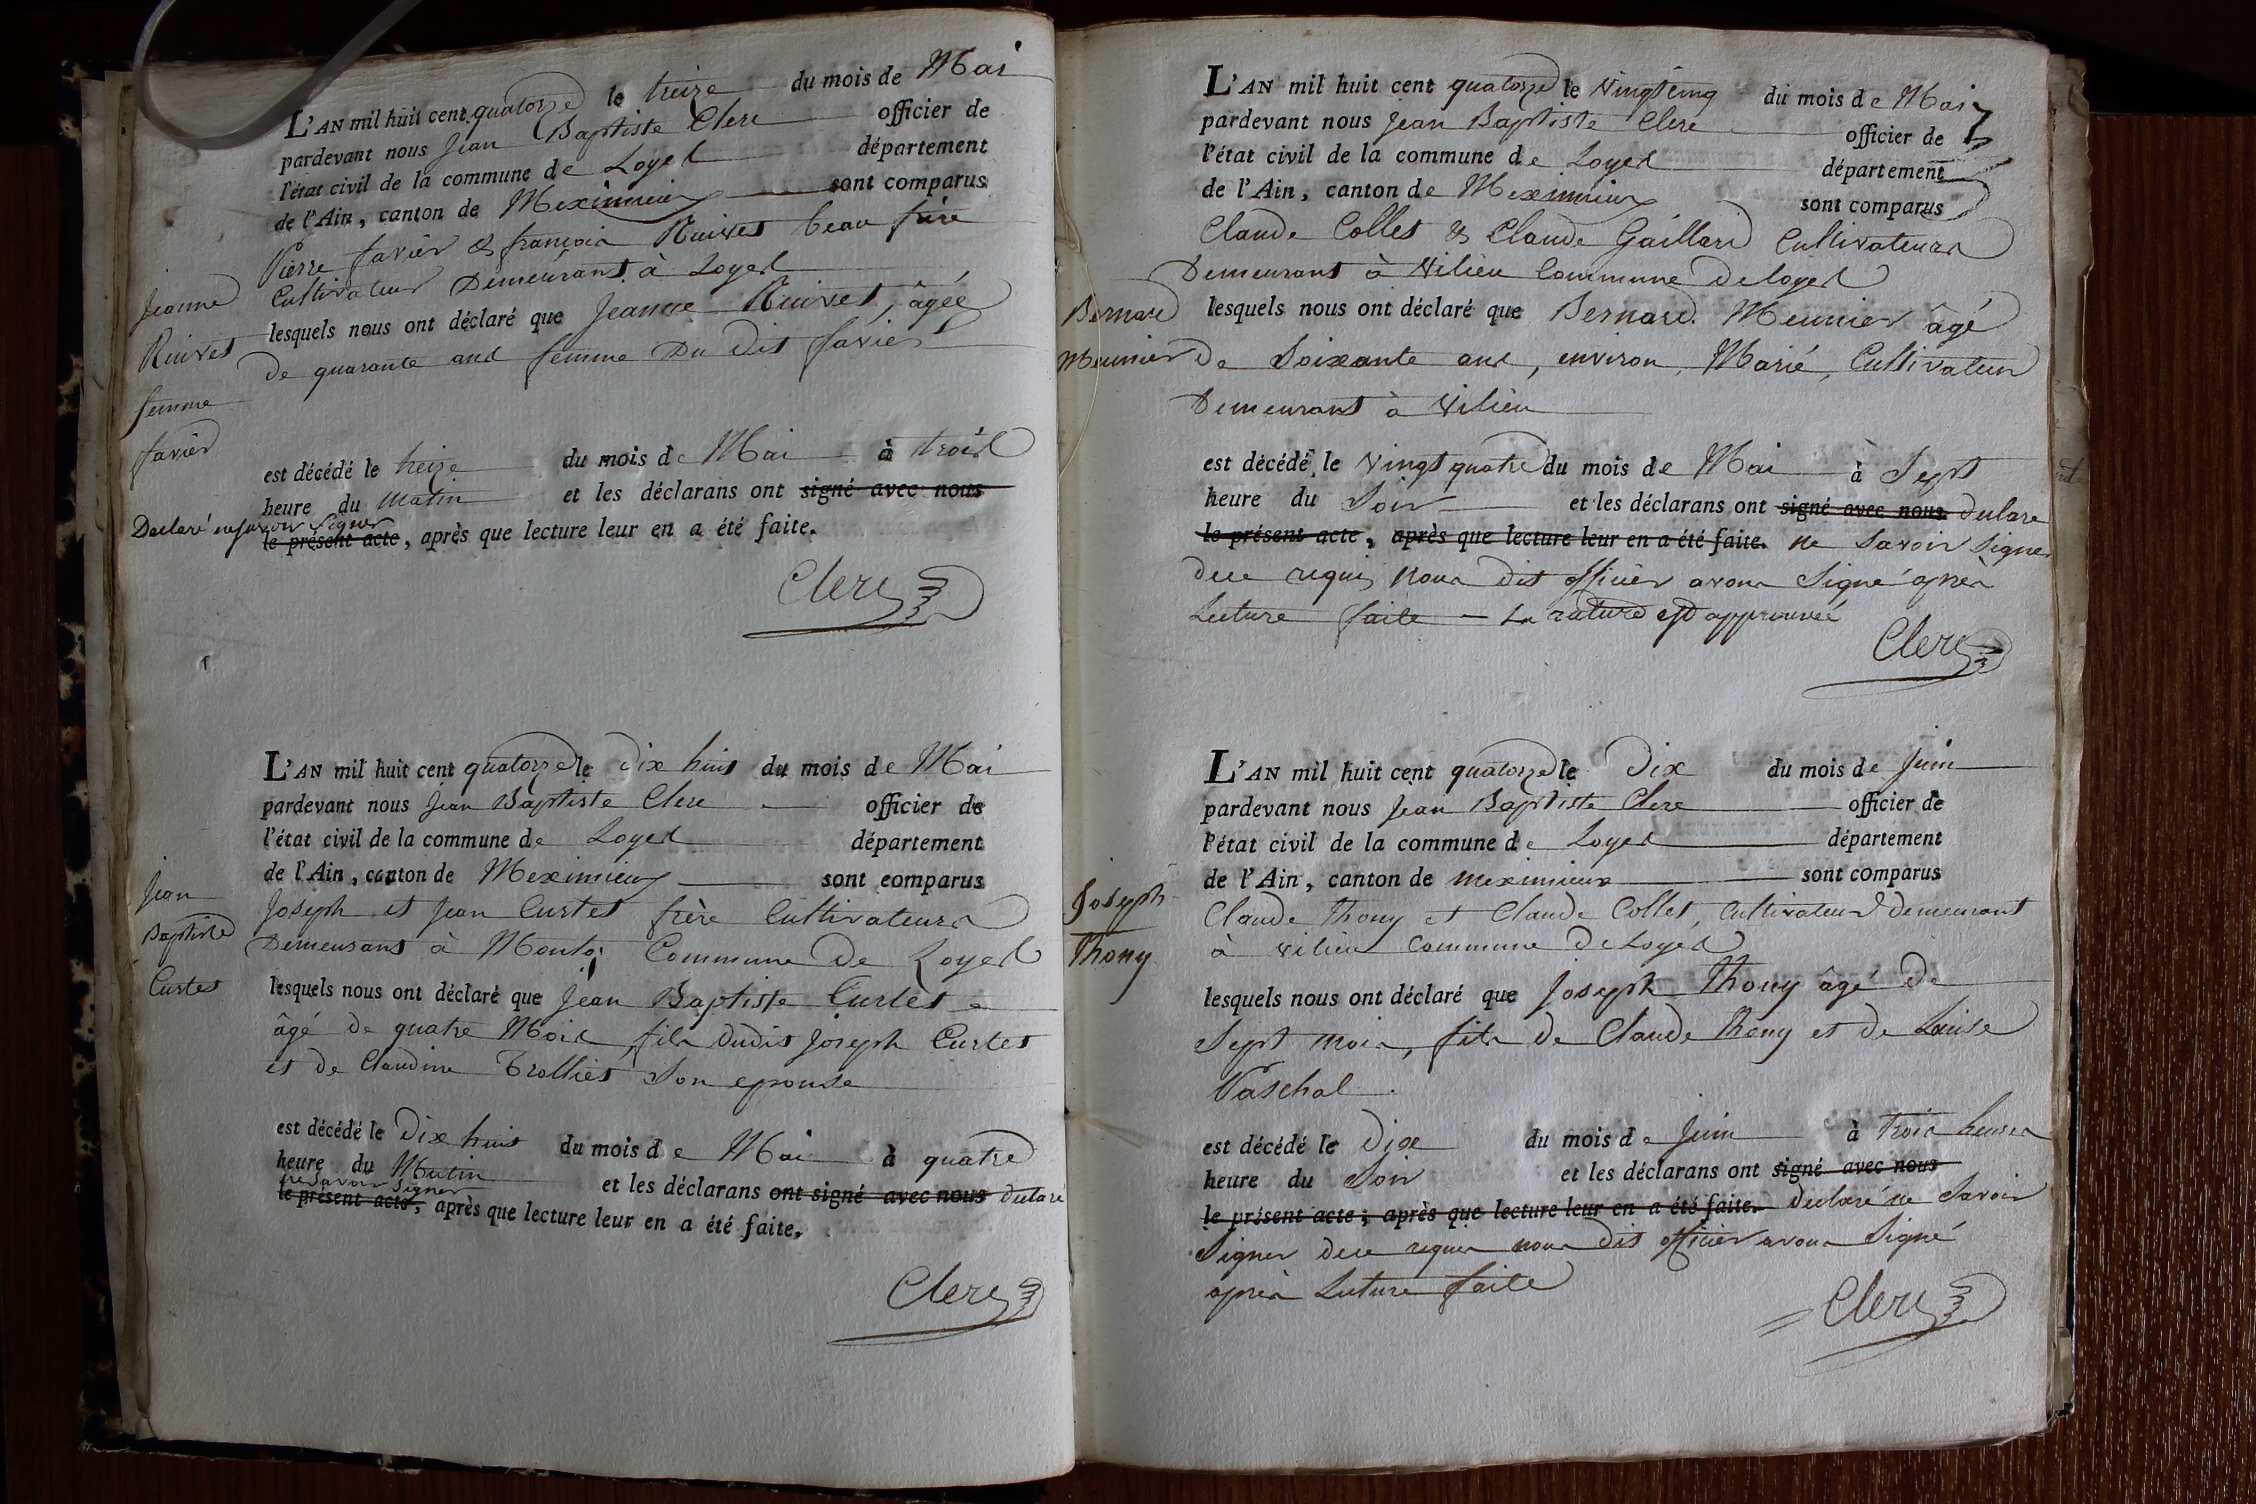 L'AN mil huit cent quatorze le treize du mois de Mai
pardevant nous Jean Baptiste Clerc officier de
l'état civil de la commune de Loyes département
de l'Ain, canton de Meximieux sont comparus
Pierre favier & françois Ruivet beau frère
Cultivateurs Demeurants à Loyes
Jeanne
Ruivet
femme
favier
lesquels nous ont déclaré que Jeanne Ruivet, âgée
De quarante ans femme Du dit favier
est décédé le treize du mois de Mai à trois
heure du matin et les déclarans ont signé avec nous
Declaré ne savoir signer
le présent acte, après que lecture leur en a été faite.
Clerc
L'AN mil huit cent quatorze le Dix huit du mois de Mai
pardevant nous Jean Baptiste Clerc officier de
l'état civil de la commune de Loyes département
de l'Ain, canton de Meximieux sont comparus
Joseph et Jean Curtet frère Cultivateurs
Demeurans à Commune De Loyes
Jean
Baptiste
Curtet
lesquels nous ont déclaré que Jean Baptiste Curtet
âgé de quatre Mois, fils dudit Joseph Curtet
et de Claudine Trolliet Son epouse
est décédé le Dix huit du mois de Mai à quatre
heure du Matin et les déclarans ont signé avec nous declaré
ne savoir signer
le présent acte, après que lecture leur en a été faite.
Clerc
L'AN mil huit cent quatorze le Vingt cinq du mois de Mai
pardevant nous Jean Baptiste Clerc officier de
l'état civil de la commune de Loyes département
de l'Ain, canton de Meximieux sont comparus
Claude Collet & Claude Gaillard Cultivateurs
Demeurans à Vilieu Commune De Loyes
Bernard
Meunier
lesquels nous ont déclaré que Bernard Meunier âgé
De Soixante ans, environ, Marié, Cultivateur
Demeurant à Vilieu
est décédé le Vingt quatre du mois de Mai à Sept
heure du Soir et les déclarans ont signé avec nous declare
le présent acte, après que lecture leur en a été faite. ne Savoir Signer
Dece requis Nous Dit officier avons Signé après
Lecture faite - La rature est approuvée
Clerc
L'AN mil huit cent quatorze le Dix du mois de Juin
pardevant nous Jean Baptiste Clerc officier de
l'état civil de la commune de Loyes département
de l'Ain, canton de Meximieux sont comparus
Claude Thony et Claude Collet, Cultivateurs demeurant
à Vilieu Commune De Loyes
Joseph
Thony
lesquels nous ont déclaré que Joseph Thony âgé De
Sept mois, fils De Claude Thony et de Louise
Paschal
est décédé le Dix du mois de Juin à trois heures
heure du Soir et les déclarans ont signé avec nous
le présent acte; après que lecture leur en a été faite. declaré ne Savoir
Signer Dece requis nous Dit officier avons Signé
après Lecture faite
Clerc